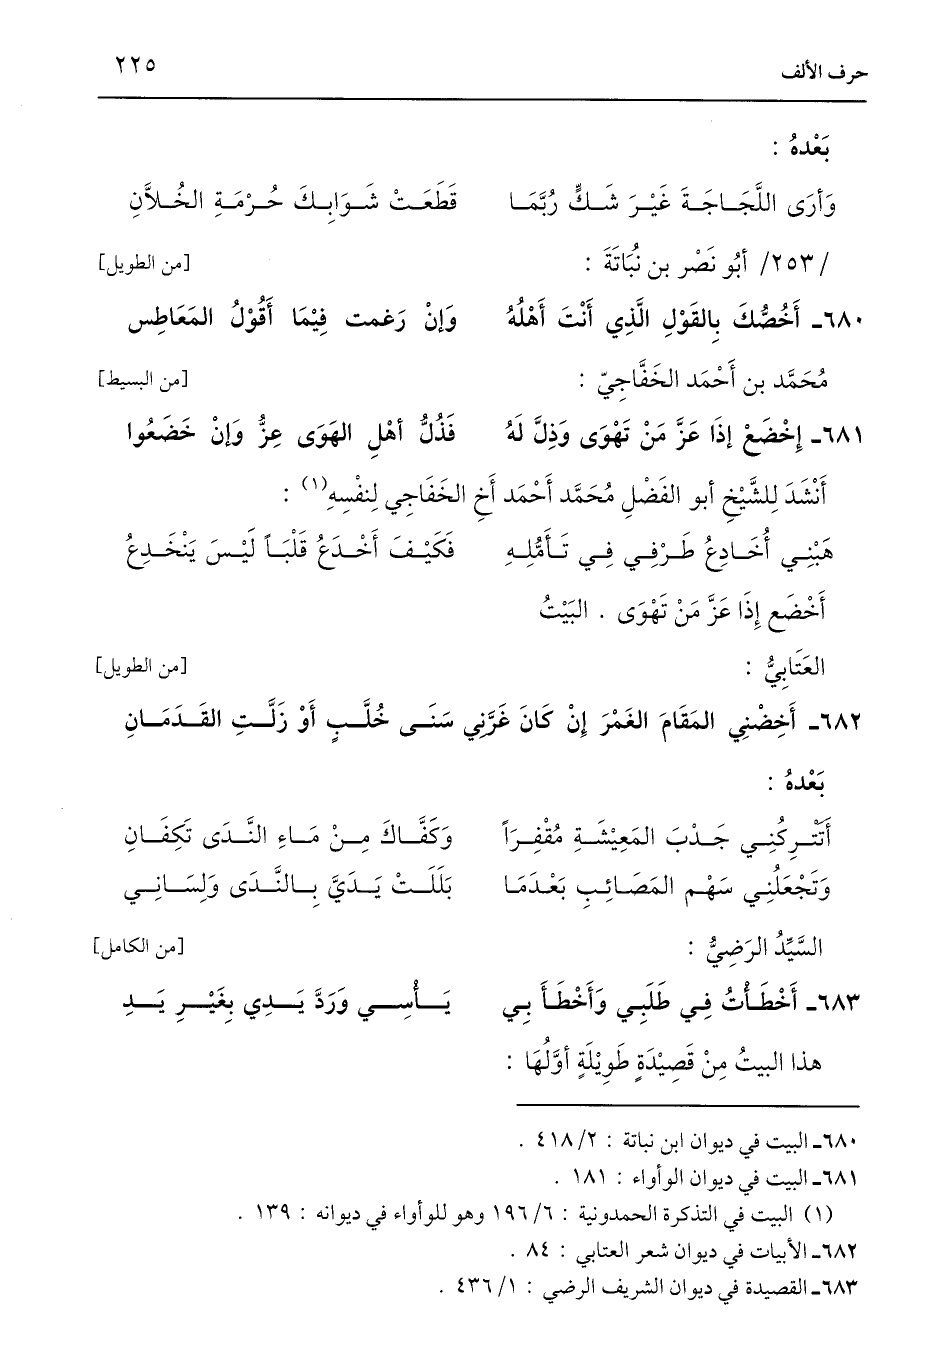 حرف الألف ٢٢٥
بَعْدهُ :
وَأرَى اللَّجَاجَةَ غَيْرَ شَكٍّ رُبَّمَا قَطَعَتْ شَوَابِكَ حُرْمَةِ الخُلاَّنِ
/٢٥٣/ أبُو نَصْرِ بن نُبَاتَةَ : [من الطويل]
٦٨٠ـ أَخُصُّكَ بِالقَوْلِ الَّذِي أَنْتَ أَهْلُهُ وَإنْ رَغمت فِيْمَا أَقُوْلُ المَعَاطِس
مُحَمَّد بن أَحْمَد الخَفَّاجِيّ : [من البسيط]
٦٨١ـ إخْضَعْ إذَا عَزَّ مَنْ تَهْوَى وَذِلَّ لَهُ فَذُلُّ أهْلِ الهَوَى عِزٌّ وَإنْ خَضَعُوا
أَنْشَدَ لِلشَّيْخِ أبو الفَضْلِ مُحَمَّد أَحْمَد أَخِ الخَفَاجِي لِنفْسِهِ(١) :
هَبْنِي أُخَادِعُ طَرْفِي فِي تَأَمُّلِهِ فَكَيْفَ أَخْدَعُ قَلْبَاً لَيْسَ يَنْخَدِعُ
أَخْضَعِ إذَا عَزَّ مَنْ تَهْوَى . البَيْتُ
العَتَابِيُّ : [من الطويل]
٦٨٢ـ أَخِضْنِي المَقَامَ الغَمْرَ إنْ كَانَ غَرَّنِي سَنَى خُلَّبٍ أوْ زَلَّتِ القَدَمَانِ
بَعْدهُ :
أَتَتْركُنِي جَدْبَ المَعِيْشَةِ مُقْفِرَاً وَكَفَّاكَ مِنْ مَاءِ النَّدَى تكِفَانِ
وَتَجْعَلُنِي سَهْمِ المَصَائِبِ بَعْدَمَا بَلَلَتْ يَدَيَّ بِالنَّدَى وَلِسَانِي
السَّيِّدُ الرَضِيُّ : [من الكامل]
٦٨٣ـ أَخْطَأْتُ فِي طَلَبِي وَأَخْطَأَ بِي يَأْسِي وَرَدَّ يَدِي بِغَيْرِ يَدِ
هذا البيتُ مِنْ قَصِيْدَةٍ طَوِيْلَةٍ أوَّلُهَا :
٦٨٠ـ البيت في ديوان ابن نباتة : ٤١٨/٢ .
٦٨١ـ البيت في ديوان الوأواء : ١٨١ .
(١) البيت في التذكرة الحمدونية : ١٩٦/٦ وهو للوأواء في ديوانه : ١٣٩ .
٦٨٢ـ الأبيات في ديوان شعر العتابي : ٨٤ .
٦٨٣ـ القصيدة في ديوان الشريف الرضي : ٤٣٦/١ .